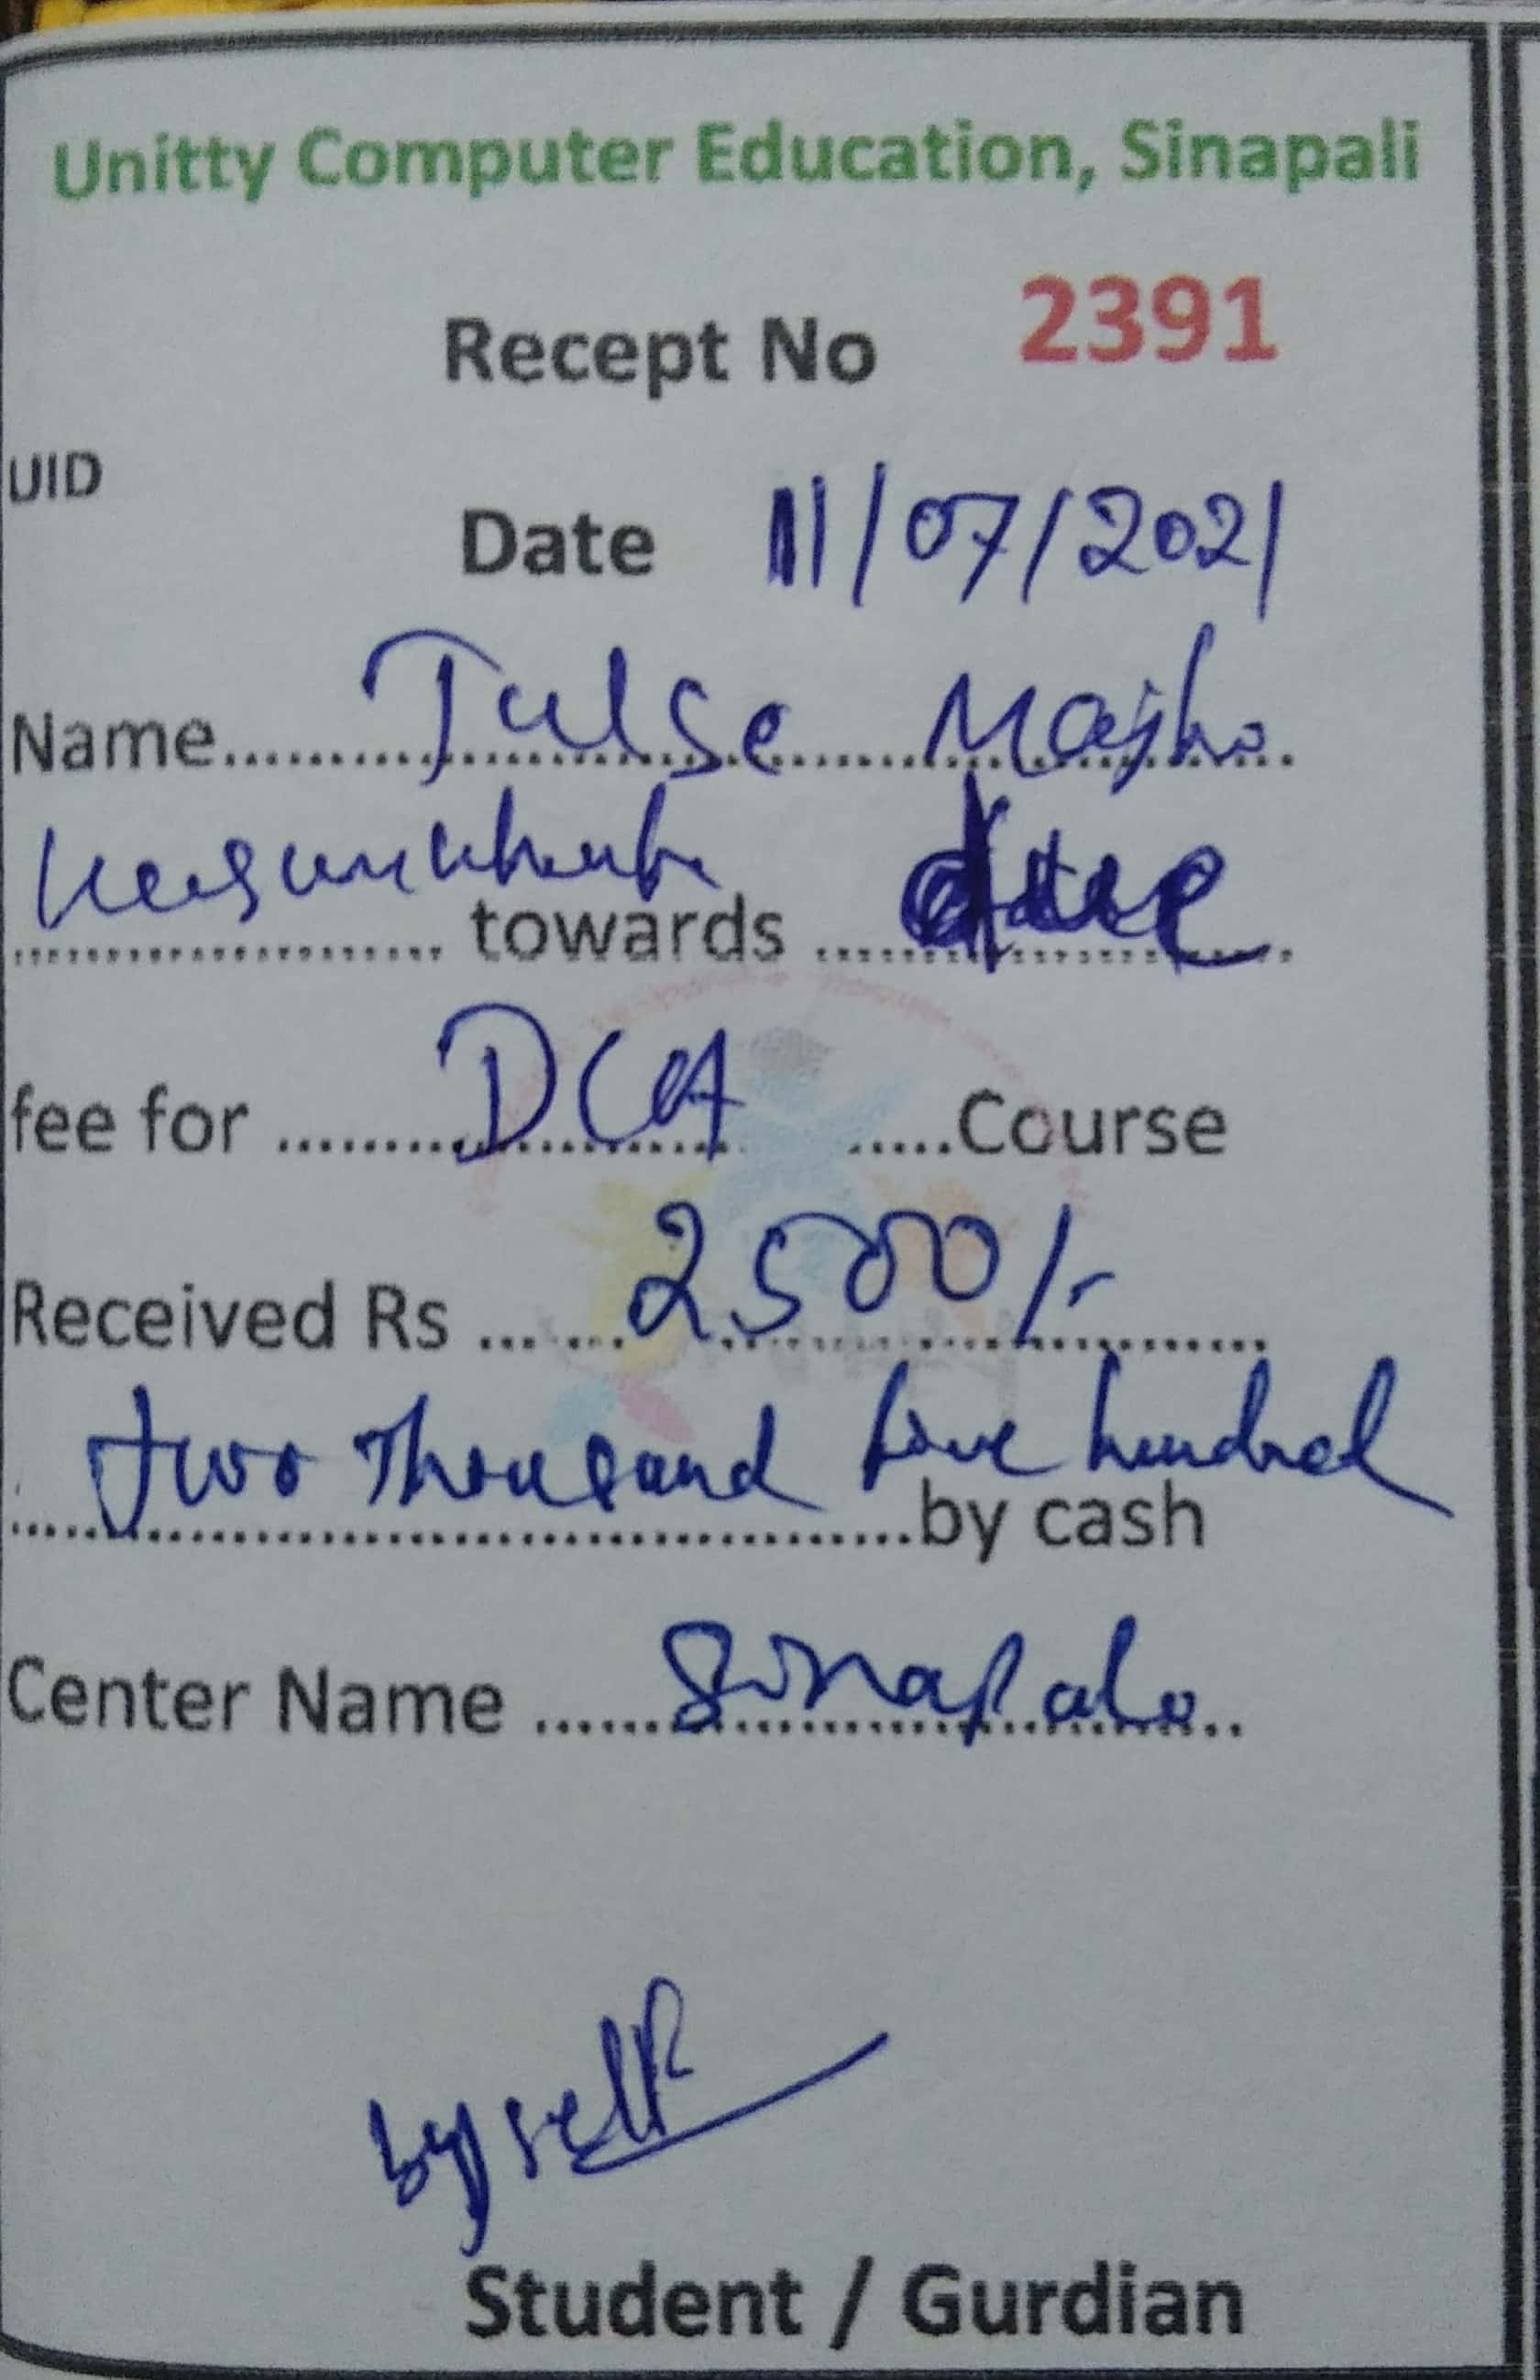 Unitty Computer Education, Sinapali
Recept No 2391
UID
Date 11/07/2021
Name Tulse Majhi
towards due
fee for DCA Course
Received Rs 2500/-
two Thousand five hundred
by cash
Center Name Sinapali
by self
Student / Gurdian